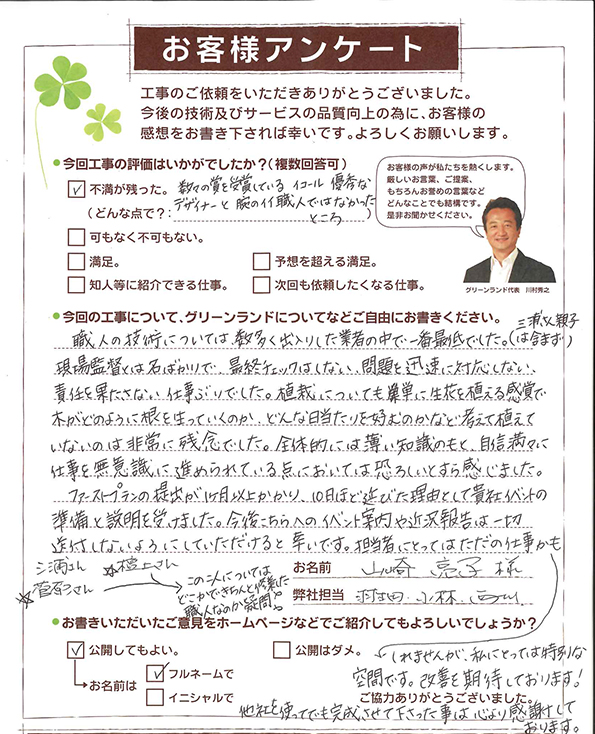 お客様アンケート
工事のご依頼をいただきありがとうございました。
今後の技術及びサービスの品質向上の為に、お客様の
感想をお書き下されば幸いです。よろしくお願いします。
●今回工事の評価はいかがでしたか?(複数回答可)
✓不満が残った。数々の賞を受賞している イコール 優秀な
(どんな点で?:デザイナーと 腕のイイ職人ではなかった
ところ)
可もなく不可もない。
満足。
予想を超える満足。
知人等に紹介できる仕事。
次回も依頼したくなる仕事。
お客様の声が私たちを熱くします。
厳しいお言葉、ご提案、
もちろんお誉めの言葉など
どんなことでも結構です。
是非お聞かせください。
グリーンランド代表 川村秀之
●今回の工事について、グリーンランドについてなどご自由にお書きください。
職人の技術については、数多く出入りした業者の中で一番最低でした。(三浦さん親子
は含まず)
現場監督とは名ばかりで、最終チェックはしない、問題を迅速に対応しない、
責任を果たさない仕事ぶりでした。植栽についても簡単に生花を植える感覚で
木がどのように根を生っていくのか、どんな日当たりを好むのかなど考えて植えて
いないのは非常に残念でした。全体的には薄い知識のもと、自信満々に
仕事を無意識に進められている点においては恐ろしいとすら感じました。
ファーストプランの提出が1ヶ月以上かかり、10日ほど延びた理由として貴社イベントの
準備と説明を受けました。今後こちらへのイベント案内や近況報告は一切
送付しないようにしていただけると幸いです。担当者にとってはただの仕事かも
三浦さん
☆菅原さん
この2人については
どこかできちんと修業した
職人なのか疑問。
お名前 山崎 亮子 様
弊社担当 村田 小林 西川
●お書きいただいたご意見をホームページなどでご紹介してもよろしいでしょうか?
✓公開してもよい。
公開はダメ。
お名前は
✓フルネームで
イニシャルで
しれませんが、私にとっては特別な
空間です。改善を期待しております!
ご協力ありがとうございました。
他社を使ってでも完成させて下さった事は心より感謝して
おります。